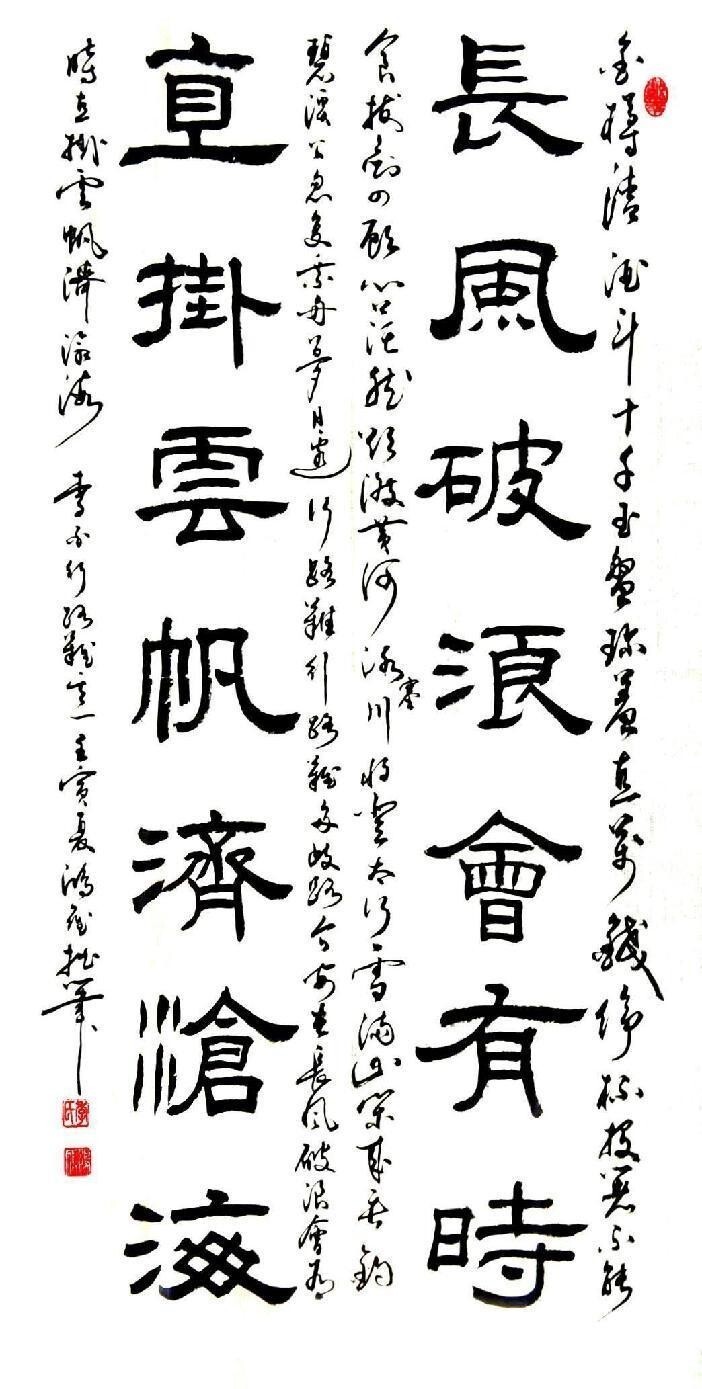 金樽清酒斗十千玉盤珍羞直萬錢停杯投箸不能
長風破浪會有時
食拔劍四顧心茫然欲渡黃河冰塞川將登太行雪滿山閑來垂釣
碧溪上忽復乘舟夢日邊行路難行路難多歧路今安在長風破浪會有
直掛雲帆濟滄海
時直掛雲帆濟滄海 李白行路難其一壬寅夏鴻 拙筆